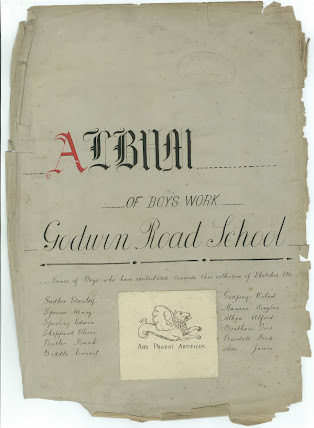 ALBUM
OF BOYS WORK
Godwin Road School
Names of Boys who have contributed towards this collection of Sketches Etc.
Sadler Stanley
Spencer Henry
Sparling Edwin
Sheppard Oliver
Butler Frank
Biddle Ernest
Godfrey Robert
Douglas
Alfred
Fred
James
ARS PROBAT ARTIFICEM